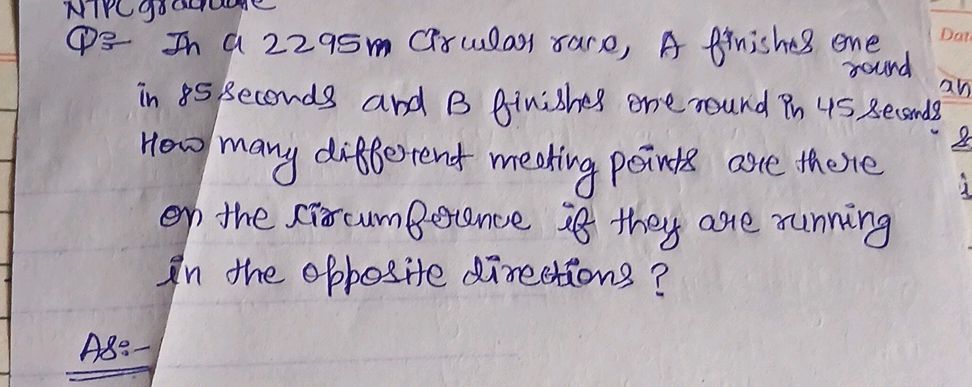 NTPC graduate
Q:- In a 2295m Circular race, A finishes one
round
in 85 seconds and B finishes one round in 45 seconds
How many different meeting points are there
on the circumference if they are running
in the opposite directions?
AS:-
Dat